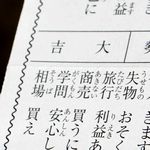 益
に
大吉
きます
失物 おそく
旅行 利益あ
商売 買うに
学問 安心し
相場 買え